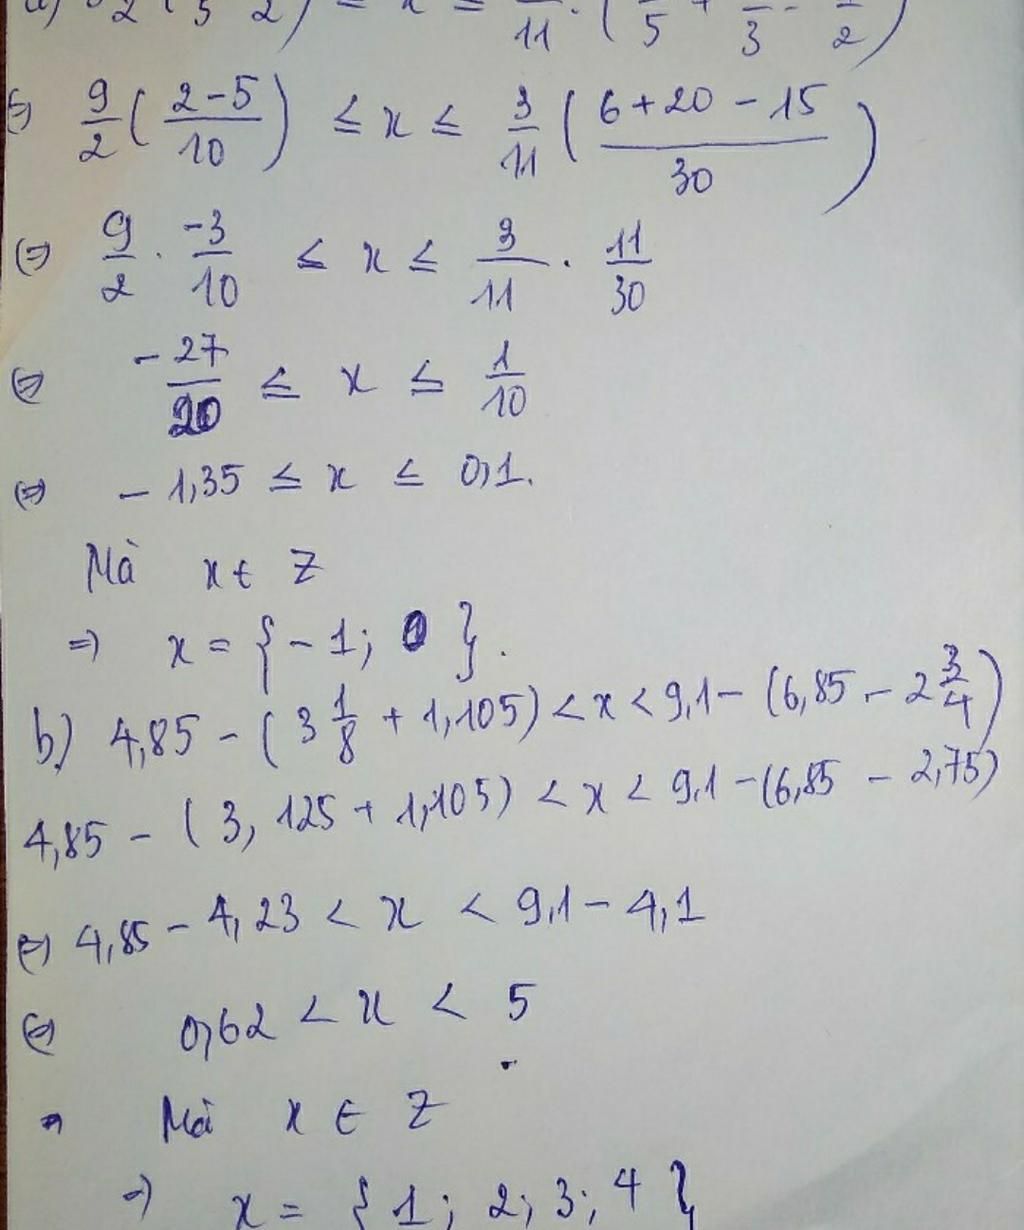 (=) 9/2 ( (2-5)/10 ) ≤ x ≤ 3/11 ( (6+20-15)/30 )
(=) 9/2 . -3/10 ≤ x ≤ 3/11 . 11/30
(=) -27/20 ≤ x ≤ 1/10
(=) - 1,35 ≤ x ≤ 0,1.
Mà x ∈ Z
=) x = { -1; 0 }.
b) 4,85 - ( 3 1/8 + 1,105) < x < 9,1 - (6,85 - 2 3/4)
4,85 - ( 3,125 + 1,105) < x < 9,1 - (6,85 - 2,75)
(=) 4,85 - 4,23 < x < 9,1 - 4,1
(=) 0,62 < x < 5
Mà x ∈ Z
=) x = { 1; 2; 3; 4 }